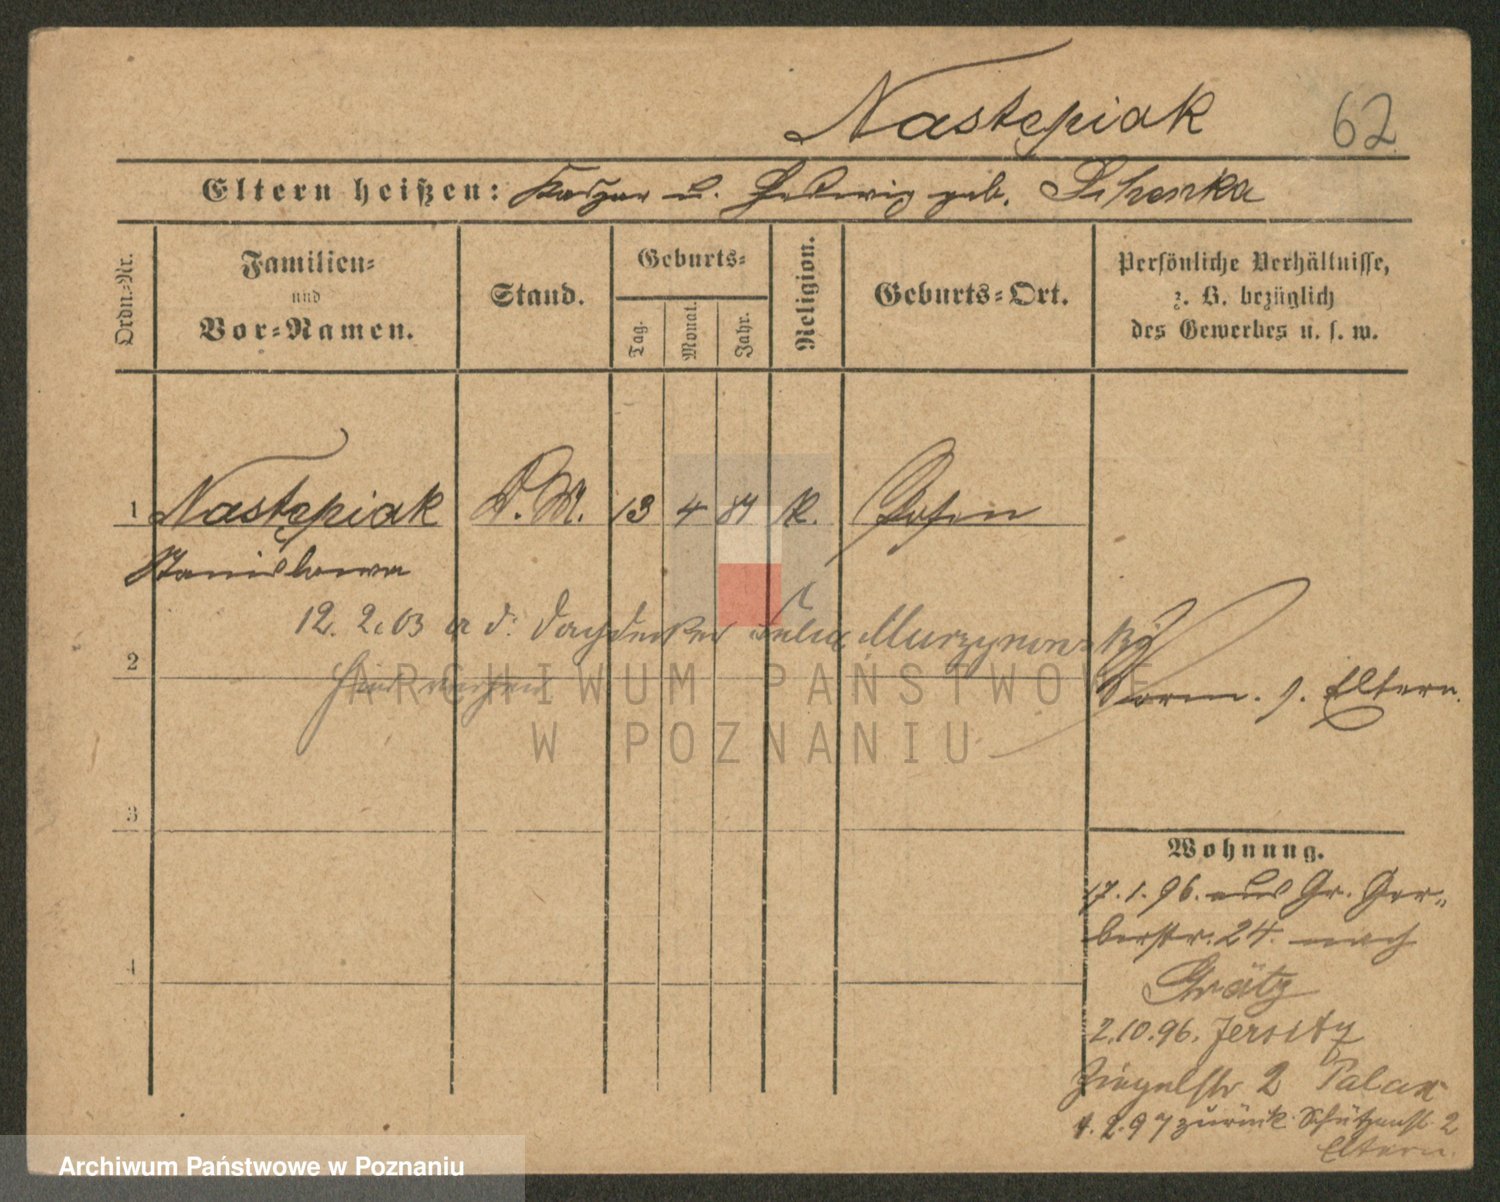 Nastepiak 62
Eltern heißen: Kaspar u. Hedwig geb.
Ordn.-Nr.
Familien-
und
Vor-Namen.
Stand.
Geburts-
Tag.
Monat.
Jahr.
Religion.
Geburts-Ort.
Persönliche Verhältnisse,
z. B. bezüglich
des Gewerbes u. s. w.
1 Nastepiak D. M. 13 4 84 K. Posen
Stanislawa
12. 2. 03 a d. Dachdecker Felix Murzynowski
2
verheir
Vorm. s. Eltern.
3
Wohnung.
17. 1. 96. aus Gr. Ger-
berstr. 24. nach
Grätz
4
2. 10. 96. Jersitz
Ziegelstr 2
4. 2. 97 zurück Schützenstr 2
Eltern.
ARCHIWUM PAŃSTWOWE
W POZNANIU
Archiwum Państwowe w Poznaniu